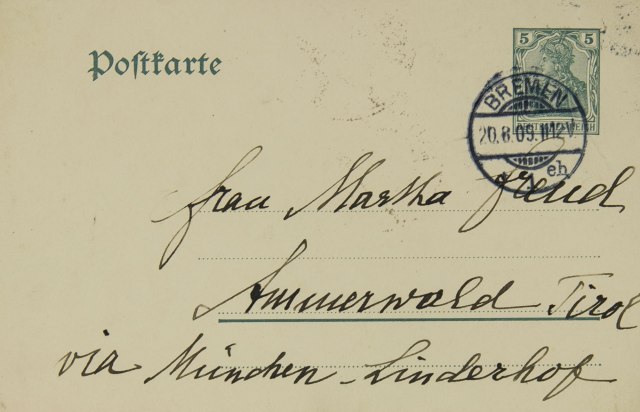 Postkarte
5 5
DEUTSCHES REICH
BREMEN
20.8.09.11-12V.
*1. eh
Frau Martha Freud
Ammerwald Tirol
via München-Linderhof